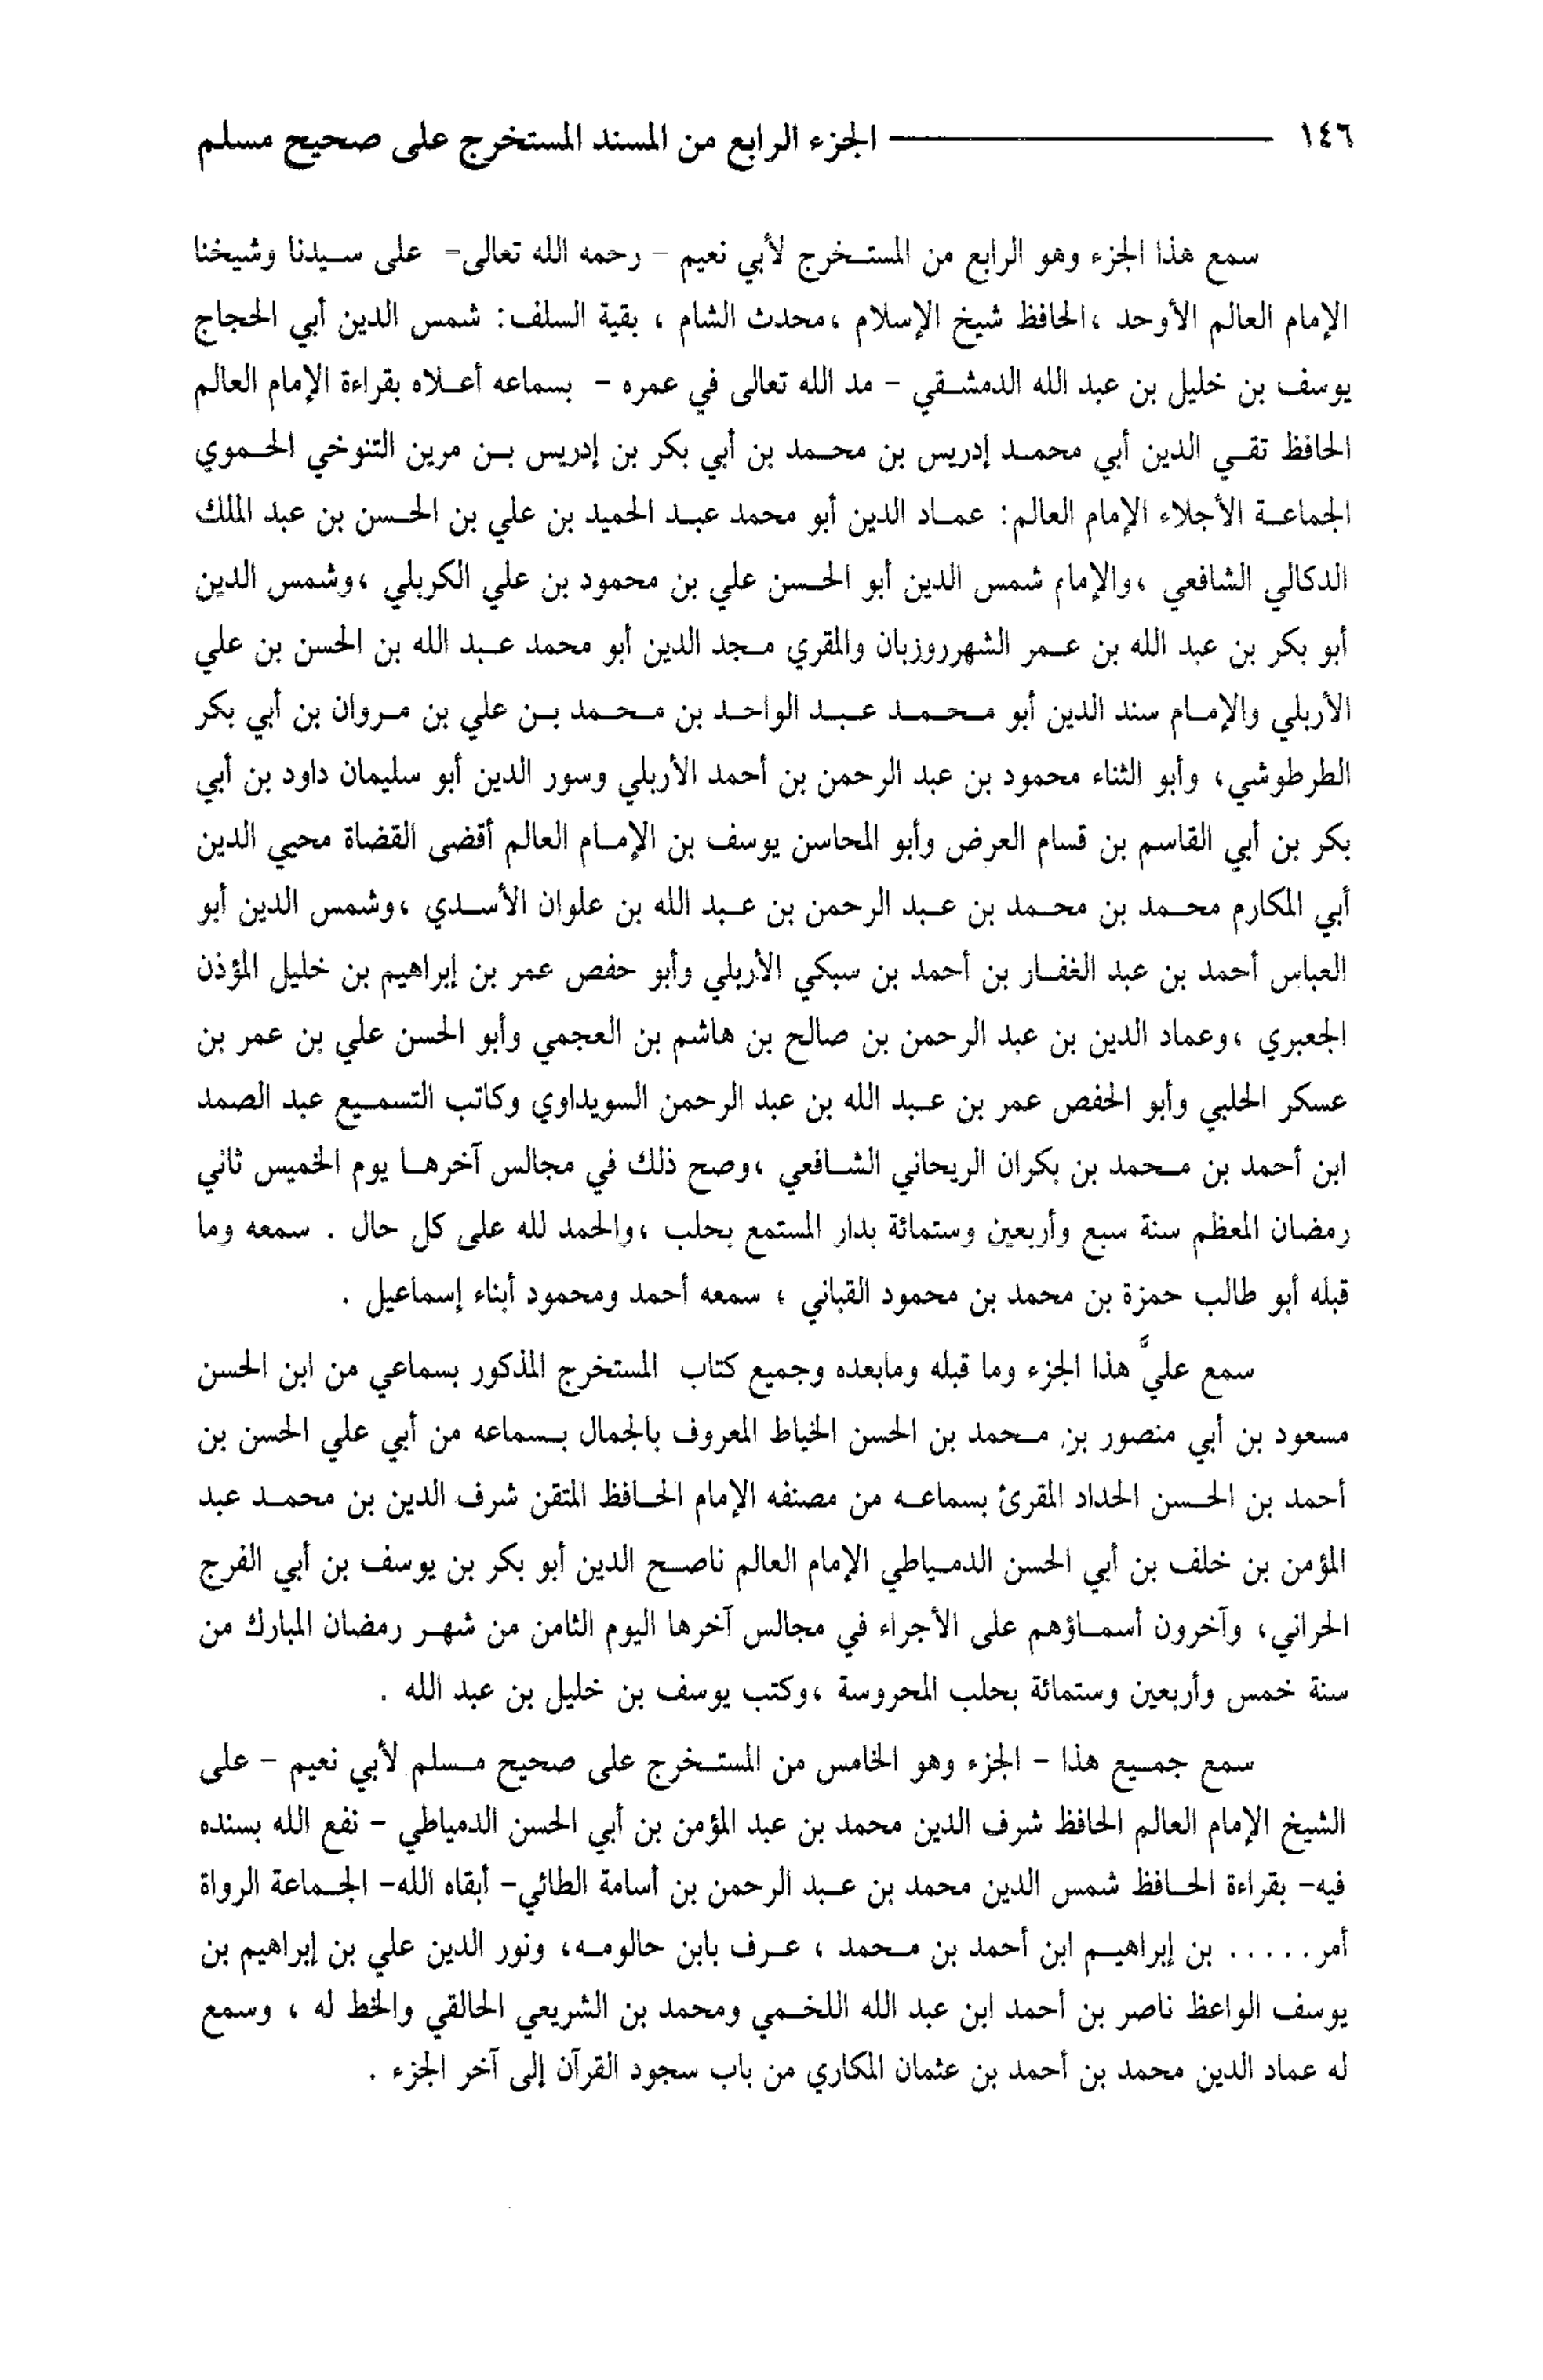 ١٤٦ الجزء الرابع من المسند المستخرج على صحيح مسلم
سمع هذا الجزء وهو الرابع من المستخرج لأبي نعيم - رحمه الله تعالى- على سيدنا وشيخنا
الإمام العالم الأوحد ،الحافظ شيخ الإسلام ،محدث الشام ، بقية السلف: شمس الدين أبي الحجاج
يوسف بن خليل بن عبد الله الدمشقي - مد الله تعالى في عمره - بسماعه أعلاه بقراءة الإمام العالم
الحافظ تقي الدين أبي محمد إدريس بن محمد بن أبي بكر بن إدريس بن مرين التنوخي الحموي
الجماعة الأجلاء الإمام العالم: عماد الدين أبو محمد عبد الحميد بن علي بن الحسن بن عبد الملك
الدكالي الشافعي ،والإمام شمس الدين أبو الحسن علي بن محمود بن علي الكربلي ،وشمس الدين
أبو بكر بن عبد الله بن عمر الشهرروزبان والمقري مجد الدين أبو محمد عبد الله بن الحسن بن علي
الأربلي والإمام سند الدين أبو محمد عبد الواحد بن محمد بن علي بن مروان بن أبي بكر
الطرطوشي، وأبو الثناء محمود بن عبد الرحمن بن أحمد الأربلي وسور الدين أبو سليمان داود بن أبي
بكر بن أبي القاسم بن قسام العرض وأبو المحاسن يوسف بن الإمام العالم أقضى القضاة محيي الدين
أبي المكارم محمد بن محمد بن عبد الرحمن بن عبد الله بن علوان الأسدي ،وشمس الدين أبو
العباس أحمد بن عبد الغفار بن أحمد بن سبكي الأربلي وأبو حفص عمر بن إبراهيم بن خليل المؤذن
الجعبري ،وعماد الدين بن عبد الرحمن بن صالح بن هاشم بن العجمي وأبو الحسن علي بن عمر بن
عسكر الحلبي وأبو الحفص عمر بن عبد الله بن عبد الرحمن السويداوي وكاتب التسميع عبد الصمد
ابن أحمد بن محمد بن بكران الريحاني الشافعي ،وصح ذلك في مجالس آخرها يوم الخميس ثاني
رمضان المعظم سنة سبع وأربعين وستمائة بدار المستمع بحلب ،والحمد لله على كل حال . سمعه وما
قبله أبو طالب حمزة بن محمد بن محمود القباني ، سمعه أحمد ومحمود أبناء إسماعيل .
سمع عليَّ هذا الجزء وما قبله ومابعده وجميع كتاب المستخرج المذكور بسماعي من ابن الحسن
مسعود بن أبي منصور بن محمد بن الحسن الخياط المعروف بالجمال بسماعه من أبي علي الحسن بن
أحمد بن الحسن الحداد المقرئ بسماعه من مصنفه الإمام الحافظ المتقن شرف الدين بن محمد عبد
المؤمن بن خلف بن أبي الحسن الدمياطي الإمام العالم ناصح الدين أبو بكر بن يوسف بن أبي الفرج
الحراني، وآخرون أسماؤهم على الأجراء في مجالس آخرها اليوم الثامن من شهر رمضان المبارك من
سنة خمس وأربعين وستمائة بحلب المحروسة ،وكتب يوسف بن خليل بن عبد الله .
سمع جميع هذا - الجزء وهو الخامس من المستخرج على صحيح مسلم لأبي نعيم - على
الشيخ الإمام العالم الحافظ شرف الدين محمد بن عبد المؤمن بن أبي الحسن الدمياطي - نفع الله بسنده
فيه- بقراءة الحافظ شمس الدين محمد بن عبد الرحمن بن أسامة الطائي- أبقاه الله- الجماعة الرواة
أمر..... بن إبراهيم ابن أحمد بن محمد ، عرف بابن حالومه، ونور الدين علي بن إبراهيم بن
يوسف الواعظ ناصر بن أحمد ابن عبد الله اللخمي ومحمد بن الشريعي الحالقي والخط له ، وسمع
له عماد الدين محمد بن أحمد بن عثمان المكاري من باب سجود القرآن إلى آخر الجزء .